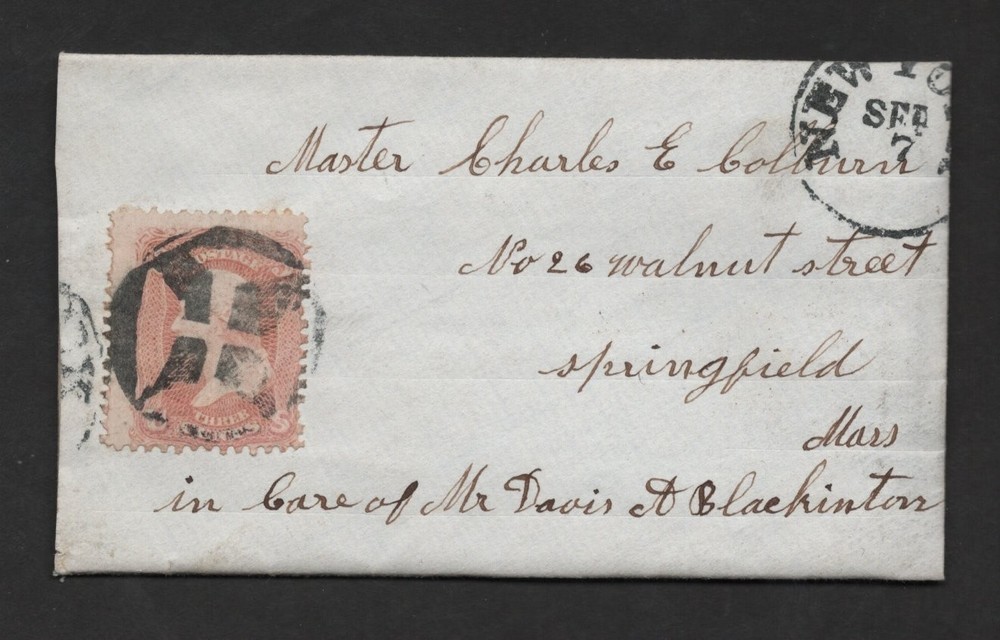 NEW YO
SEP
7
Master Charles E Colburn
No 26 walnut street
springfield
Mars
in Care of Mr Davis A Blackinton
POSTAGE
THREE